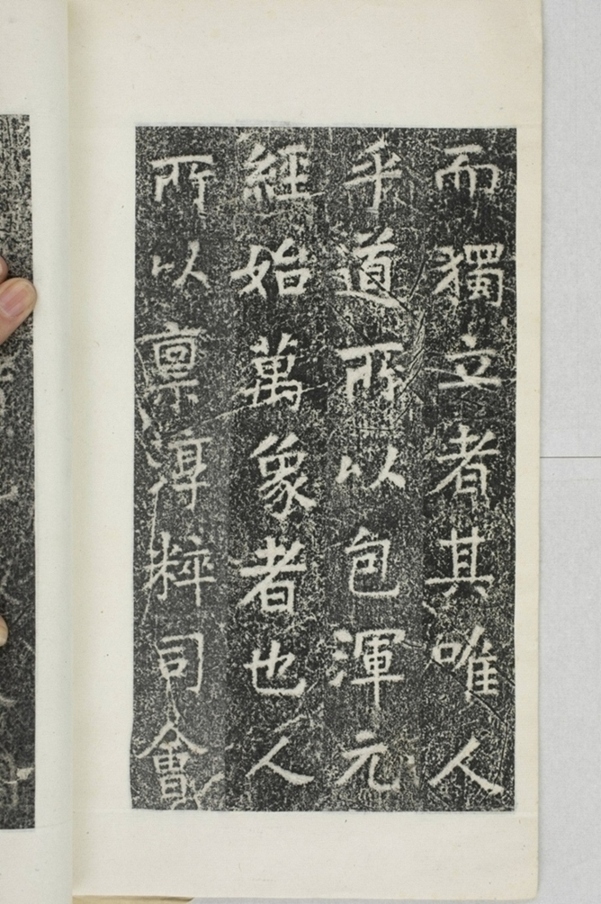 而獨立者其唯人
乎道所以包渾元
經始萬象者也人
所以稟淳粹司會